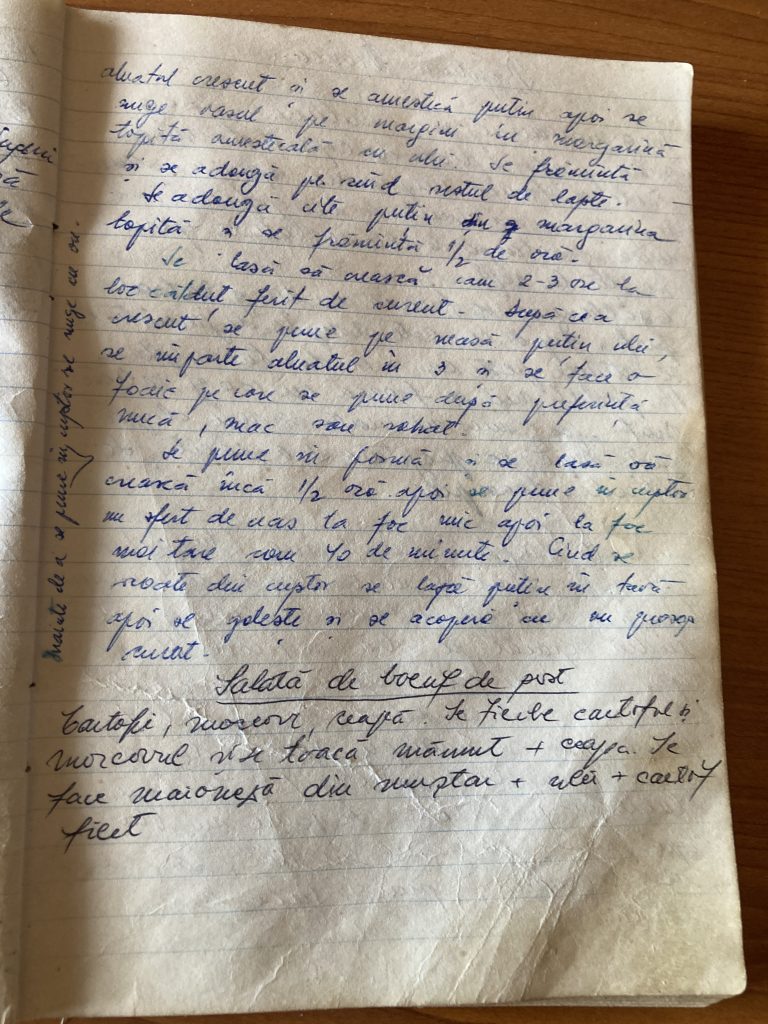 aluatul crescut și se amestică puțin apoi se
unge vasul pe margini în margarină
topită amestecată cu ulei. Se frămîntă
și se adaugă pe rînd restul de lapte.
Se adaugă cîte puțin din margarina
topită și se frămîntă 1/2 de oră.
Se lasă să crească cam 2-3 ore la
loc căldut ferit de curent. După ce a
crescut se pune pe measă puțin ulei,
se împarte aluatul în 3 și se face o
foaie pe care se pune după preferință
nucă, mac sau rahat.
Se pune în formă și se lasă să
crească încă 1/2 oră apoi se pune în cuptor
un sfert de ceas la foc mic apoi la foc
mai tare cam 40 de minute. Cînd se
scoate din cuptor se lasă puțin în tavă
apoi se golește și se acoperă cu un prosop
curat.
Înainte de a se pune în cuptor se unge cu ou.
Salată de boeuf de post
Cartofi, morcovi, ceapă. Se fierbe cartoful și
morcovul și se toacă mărunt + ceapa. Se
face maioneză din muștar + ulei + cartof
fiert